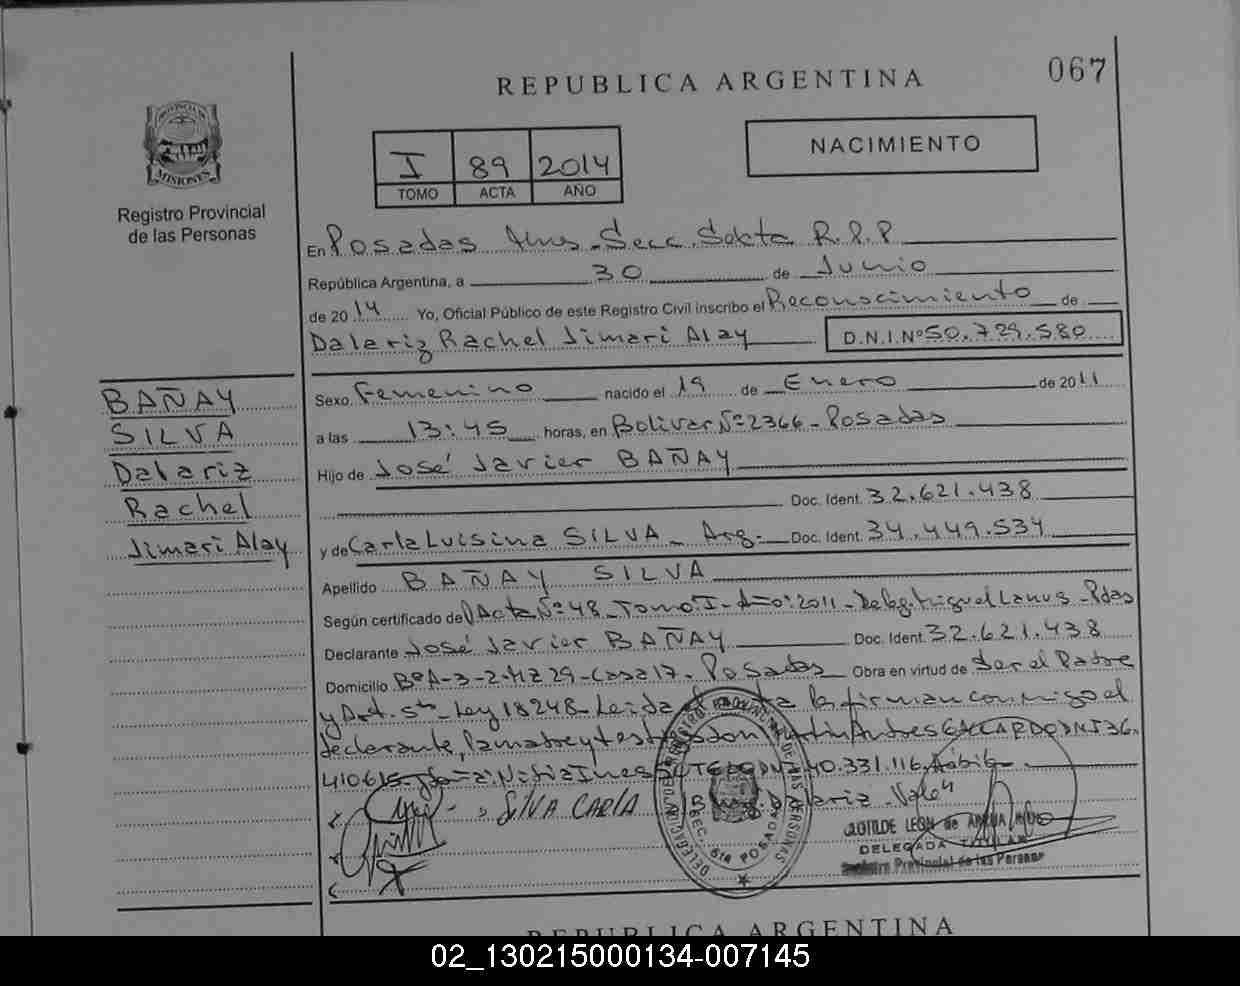 REPUBLICA ARGENTINA
067
PROVINCIA DE
MISIONES
Registro Provincial
de las Personas
I 89 2014
TOMO ACTA AÑO
NACIMIENTO
En Posadas Mnes. Secc. Sexta R.P.P
República Argentina, a 30 de Junio
de 2014 Yo, Oficial Público de este Registro Civil inscribo el Reconoscimiento de
Dalariz Rachel Jimari Alay D.N.I Nº 50.729.580
BAÑAY
SILVA
Dalariz
Rachel
Jimari Alay
Sexo Femenino nacido el 19 de Enero de 2011
a las 13:45 horas, en Bolivar Nº 2366 - Posadas
Hijo de José Javier BAÑAY
Doc. Ident. 32.621.438
y de Carla Luisina SILVA - Arg. - Doc. Ident. 34.449.534
Apellido BAÑAY SILVA
Según certificado de Acta Nº 48 - Tomo: I - Año: 2011 - Deleg. Miguel Lanus - Pdas
Declarante José Javier BAÑAY Doc. Ident. 32.621.438
Domicilio Bº A-3-2-MZ 29-Casa 17. Posadas Obra en virtud de Ser el Padre
y Art. 5to Ley 18248 - Leida el acta la firman conmigo el
declarante, la madre y testigos Andres GALLARDO DNI 36.
410615 - Ines DNI 40.331.116. Hábil
SILVA CARLA Dalariz. Vale
CLOTILDE LEON de
DELEGADA TITULAR
Registro Provincial de las Personas
DELEGACION DEL REGISTRO PROVINCIAL DE LAS PERSONAS
SEC. 6ta POSADAS
REPUBLICA ARGENTINA
02_130215000134-007145